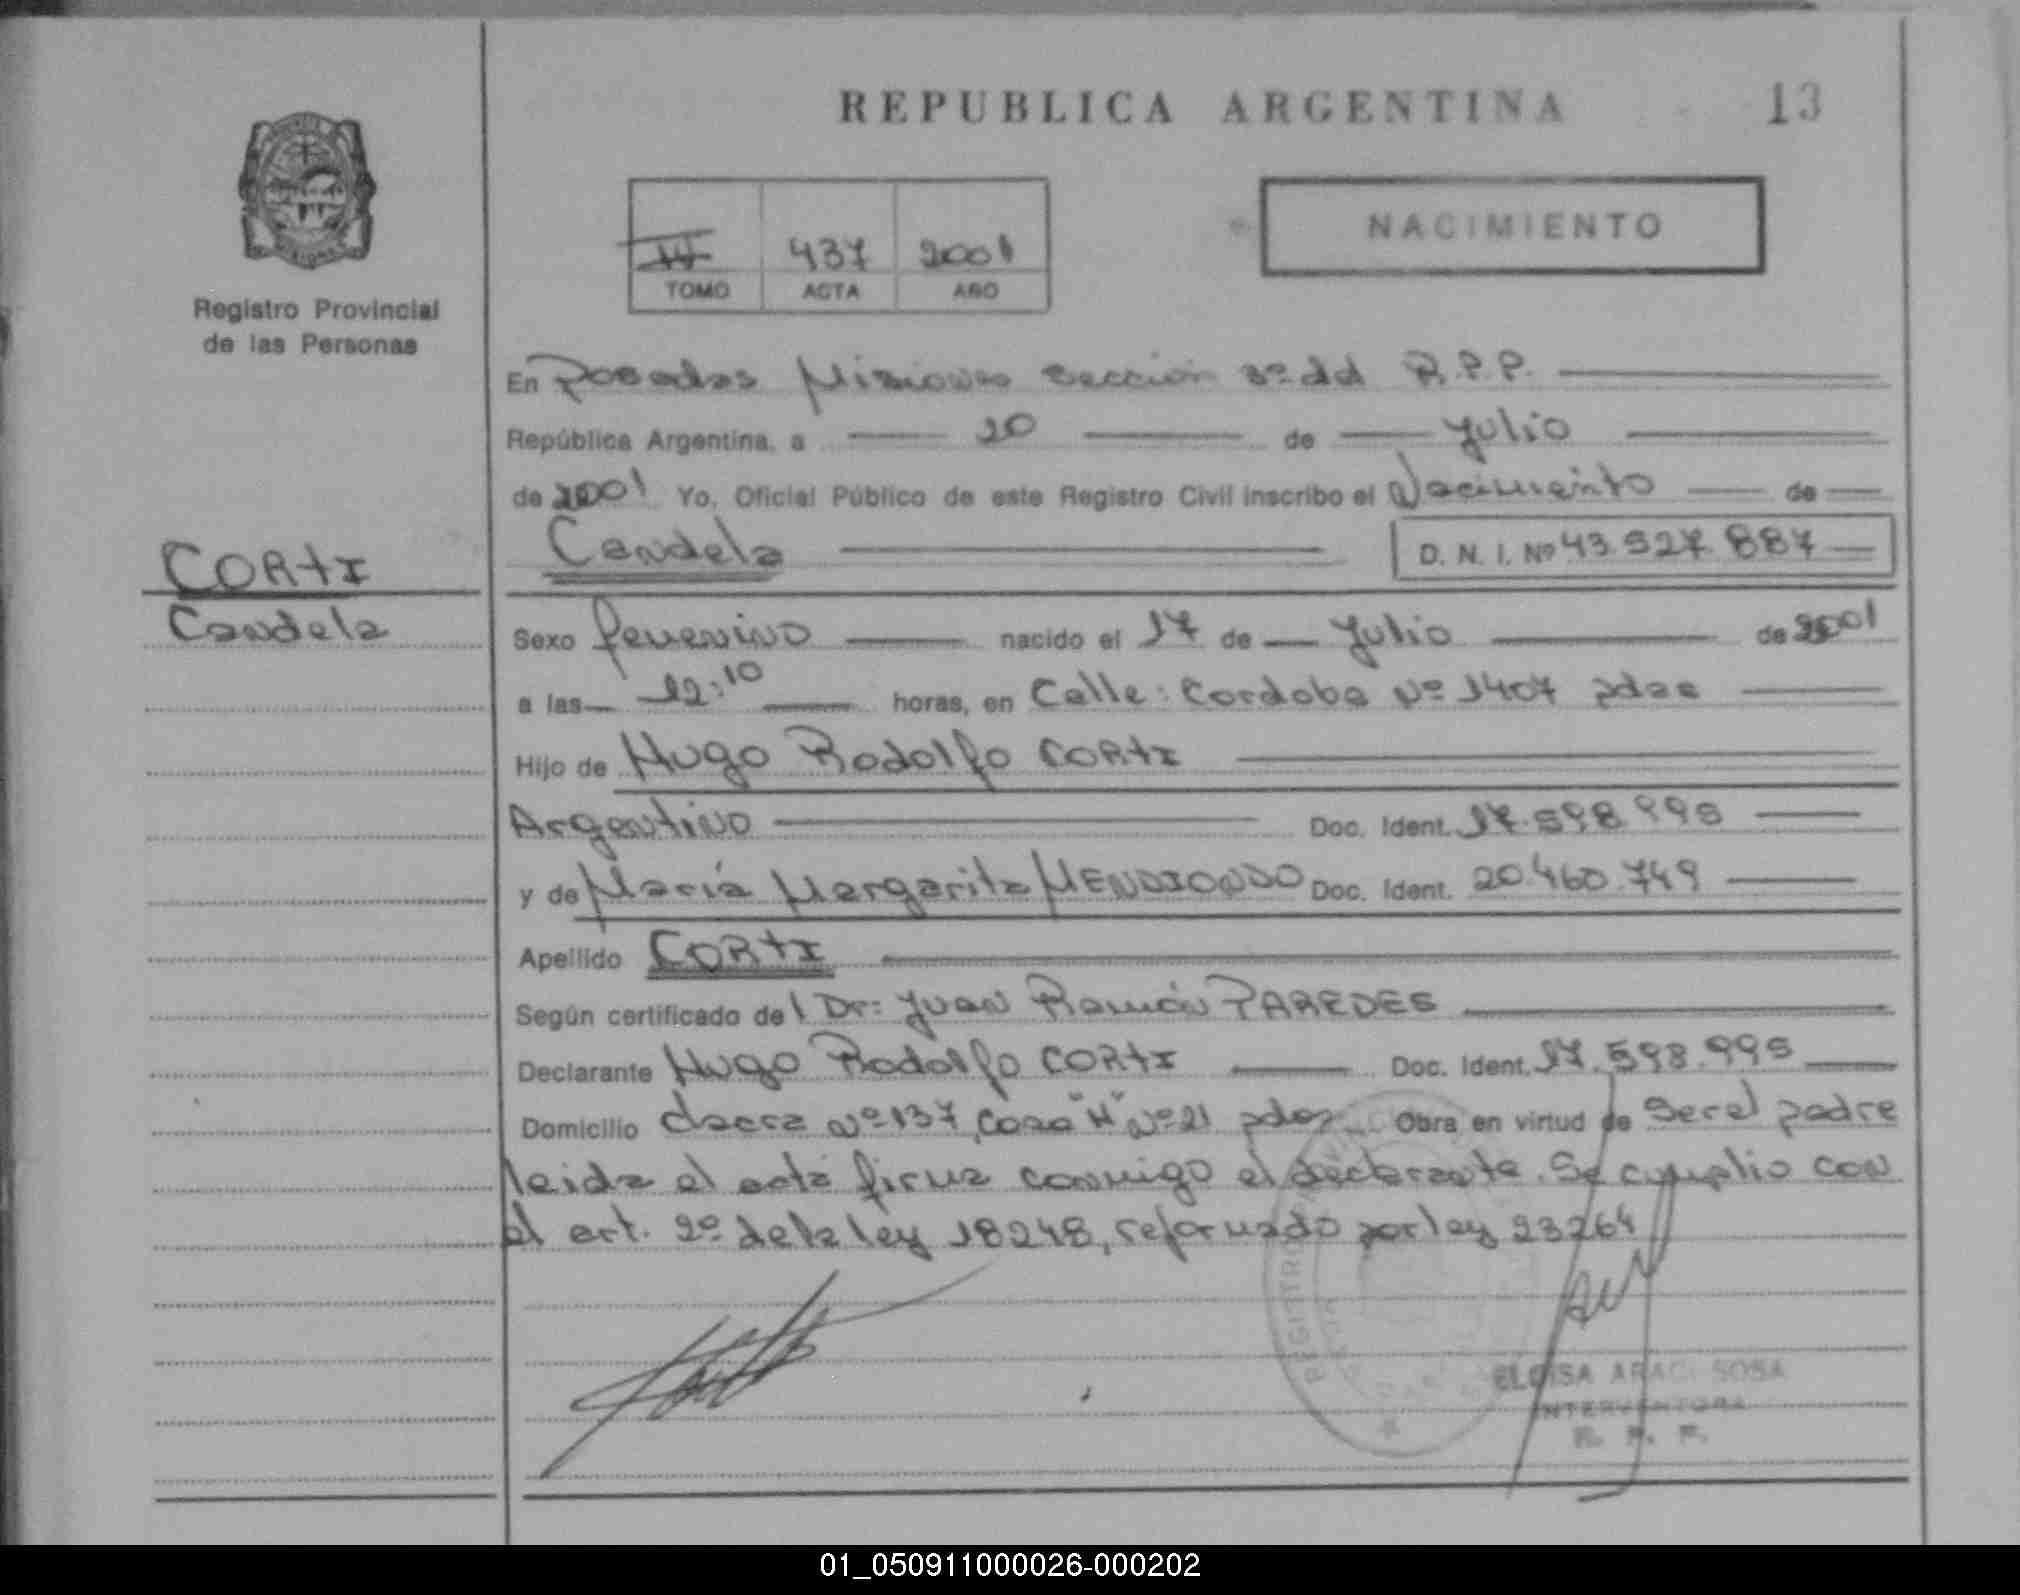 REPUBLICA ARGENTINA 13
437 2001
TOMO ACTA AÑO
NACIMIENTO
Registro Provincial
de las Personas
En Posadas Misiones sección 3º del R.P.P.
República Argentina, a 20 de Julio
de 2001 Yo, Oficial Público de este Registro Civil inscribo el Nacimiento de
Candela D. N. I. Nº 43.527.887
CORTI
Candela
Sexo femenino nacido el 17 de Julio de 2001
a las 12:10 horas, en Calle: Cordoba Nº 1407 pdas
Hijo de Hugo Rodolfo CORTI
Argentino Doc. Ident. 17.598.995
y de María Margarita MENDIONDO Doc. Ident. 20.460.749
Apellido CORTI
Según certificado del Dr: Juan Ramón PAREDES
Declarante Hugo Rodolfo CORTI Doc. Ident. 17.598.995
Domicilio chacra Nº 137, casa "H" Nº 21 pdas Obra en virtud de ser el padre
leida el acta firma conmigo el declarante. Se cumplio con
el art. 2º de la ley 18248, reformado por ley 23264
ELOISA ARACI SOSA
INTERVENTORA
R. P. P.
01_050911000026-000202